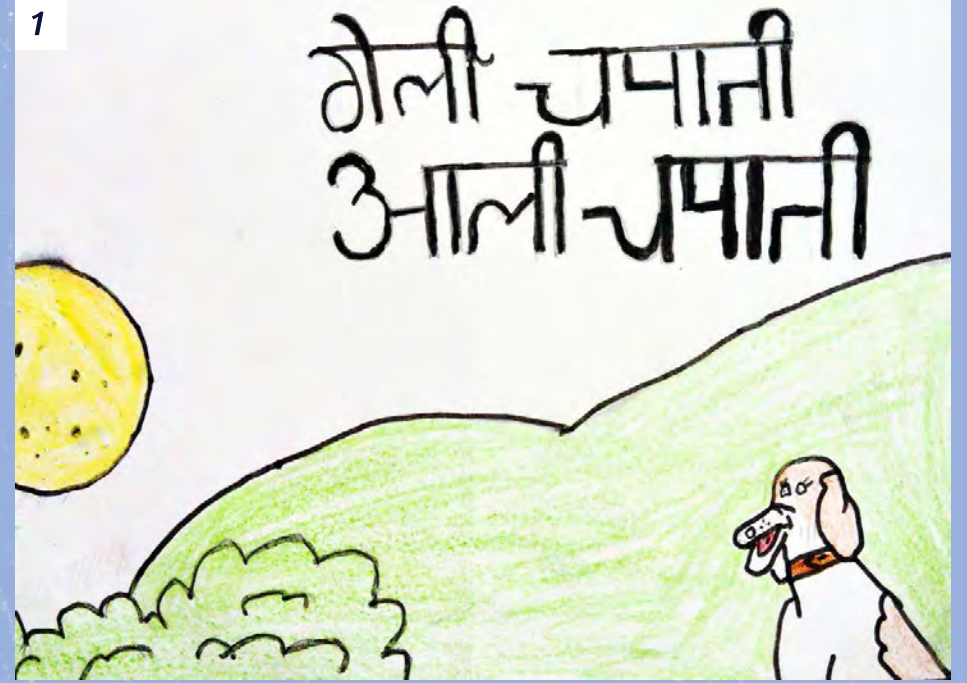 1
गेली चपाती
आली चपाती